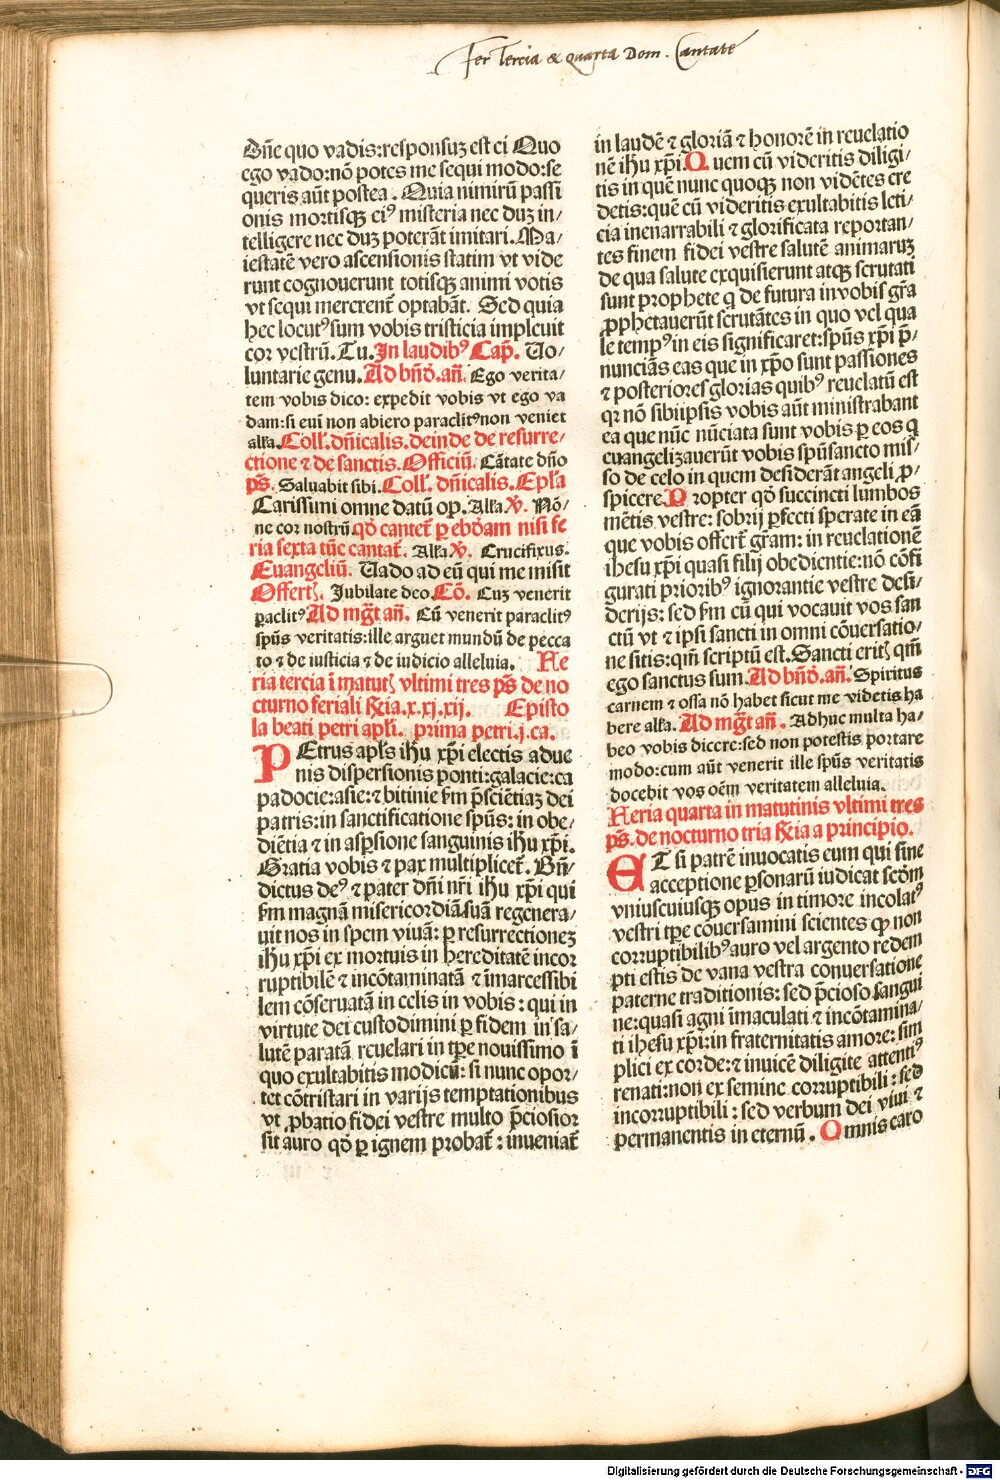 Fer Tercia & quarta Dom. Cantate
Dñe quo vadis:responsuꝫ est ei Quo
ego vado:nõ potes me sequi modo:se
queris aũt postea. Quia nimirũ passi
onis mortisqꝫ eiꝰ misteria nec duꝫ in⸗
telligere nec duꝫ poterãt imitari. Ma⸗
iestatẽ vero ascensionis statim vt vide
runt cognouerunt totisqꝫ animi votis
vt sequi mererent̃ optabãt. Sed quia
hec locutꝰ sum vobis tristicia impleuit
cor vestrũ. Tu. In laudibꝰ Cap̃. Uo⸗
luntarie genu. Ad bñð. añ. Ego verita⸗
tem vobis dico: expedit vobis vt ego va
dam:si eni non abiero paraclitꝰ non veniet
alła. Coll̃. dñicalis. deinde de resurre⸗
ctione ⁊ de sanctis. Officiũ. Cãtate dño
ps̃. Saluabit sibi. Coll̃. dñicalis. Epła
Carissimi omne datũ op. Alła. V̇. Nõ⸗
ne cor nostrũ qð cantet̃ ꝑ ebðam nisi fe
ria sexta tũc cantat̃. Alła V̇. Crucifixus.
Euangeliũ. Uado ad eũ qui me misit
Offert̃. Jubilate deo. Cõ. Cuꝫ venerit
ꝑaclitꝰ Ad mg̃t añ. Cũ venerit paraclitꝰ
spũs veritatis:ille arguet mundũ de pecca
to ⁊ de iusticia ⁊ de iudicio alleluia. Fe
ria tercia ĩ matut̃ vltimi tres ps̃ de no
cturno feriali ꝶia.x.xj.xij. Episto
la beati petri apłi. prima petri.j.ca.
PEtrus apłs ihũ xp̃i electis adue
nis dispersionis ponti:galacie:ca
padocie:asie:⁊ bitinie ẜm p̃sciẽtiaꝫ dei
patris:in sanctificatione spũs: in obe⸗
diẽtia ⁊ in asꝑsione sanguinis ihũ xp̃i.
Gratia vobis ⁊ pax multiplicet̃. Bñ⸗
dictus deꝰ ⁊ pater dñi nr̃i ihũ xp̃i qui
ẜm magnã misericordiã suã regenera⸗
uit nos in spem viuã: ꝑ resurrectioneꝫ
ihũ xp̃i ex mortuis in hereditatẽ incor
ruptibilẽ ⁊ incõtaminatã ⁊ ĩmarcessibi
lem cõseruatã in celis in vobis: qui in
virtute dei custodimini ꝑ fidem in sa⸗
lutẽ paratã reuelari in tp̃e nouissimo ĩ
quo exultabitis modicũ: si nunc opor⸗
tet cõtristari in varijs temptationibus
vt ꝓbatio fidei vestre multo p̃ciosior
sit auro qð ꝑ ignem probat̃: inueniat̃
in laudẽ ⁊ gloriã ⁊ honorẽ in reuelatio
nẽ ihũ xp̃i. Quem cũ videritis diligi⸗
tis in quẽ nunc quoqꝫ non vidẽtes cre
detis:quẽ cũ videritis exultabitis leti⸗
cia inenarrabili ⁊ glorificata reportan⸗
tes finem fidei vestre salutẽ animaruꝫ
de qua salute exquisierunt atqꝫ scrutati
sunt prophete q̃ de futura in vobis gr̃a
ꝓphetauerũt scrutãtes in quo vel qua
le tempꝰ in eis significaret:spũs xp̃i p̃⸗
nunciãs eas que in xp̃o sunt passiones
⁊ posteriores glorias quibꝰ reuelatũ est
qꝛ nõ sibiipsis vobis aũt ministrabant
ea que nũc nũciata sunt vobis ꝑ eos q̃
euangelizauerũt vobis spũsancto mis⸗
so de celo in quem desiderãt angeli ꝓ⸗
spicere. Propter qð succincti lumbos
mẽtis vestre: sobrij ꝑfecti sperate in eã
que vobis offert̃ gr̃am: in reuelationẽ
ihesu xp̃i quasi filij obedientie:nõ cõfi
gurati prioribꝰ ignorantie vestre desi⸗
derijs: sed ẜm eũ qui vocauit vos san
ctũ vt ⁊ ipsi sancti in omni cõuersatio⸗
ne sitis:qm̃ scriptũ est. Sancti eritꝭ qm̃
ego sanctus sum. Ad bñð. añ. Spiritus
carnem ⁊ ossa nõ habet sicut me videtis ha
bere alła. Ad mg̃t añ. Adhuc multa ha⸗
beo vobis dicere:sed non potestis portare
modo:cum aũt venerit ille spũs veritatis
docebit vos oẽm veritatem alleluia.
Feria quarta in matutinis vltimi tres
ps̃. de nocturno tria ꝶia a principio.
ET si patrẽ inuocatis eum qui sine
acceptione ꝑsonarũ iudicat scðm
vniuscuiusqꝫ opus in timore incolatꝰ
vestri tp̃e cõuersamini scientes ꝙ non
corruptibilibꝰ auro vel argento redem
pti estis de vana vestra conuersatione
paterne traditionis: sed p̃cioso sangui
ne:quasi agni ĩmaculati ⁊ incõtamina⸗
ti ihesu xp̃i:in fraternitatis amore: sim
plici ex corde:⁊ inuicẽ diligite attentiꝰ
renati:non ex semine corruptibili: sed
incorruptibili: sed verbum dei viui ⁊
permanentis in eternũ. Omnis caro
Digitalisierung gefördert durch die Deutsche Forschungsgemeinschaft - DFG